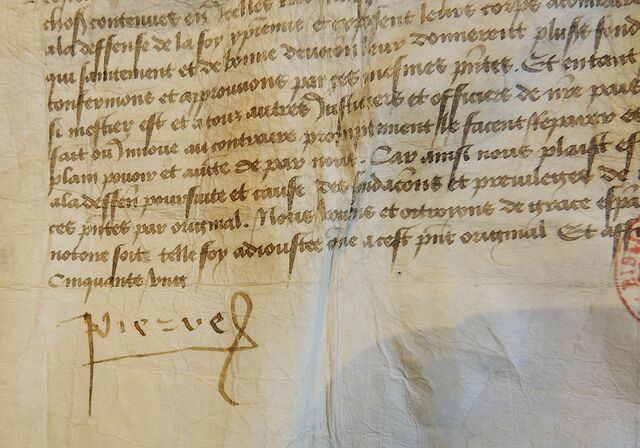 choses contenues en icelles
ala deffense de la foy xpienne et exposent leurs corps
qui sainctement et de bonne devocion leur donnerent plus fond
confermons et approuvons par ces mesmes pntes. Et en tant
si mestier est et a tous autres Justiciers et officiers de nre pais
fait ou Innove au contraire promptement le facent Reparer et
plain povoir et aucte de par nous. Car ainsi nous plaist es
ala deffen poursuite et cause des fundacons et previleges de
ces pntes par original. Nous voulons et octroyons de grace espa
notoire soit telle foy adioustee que a cest pnt original Et aff
Cinquante ung
Pierre